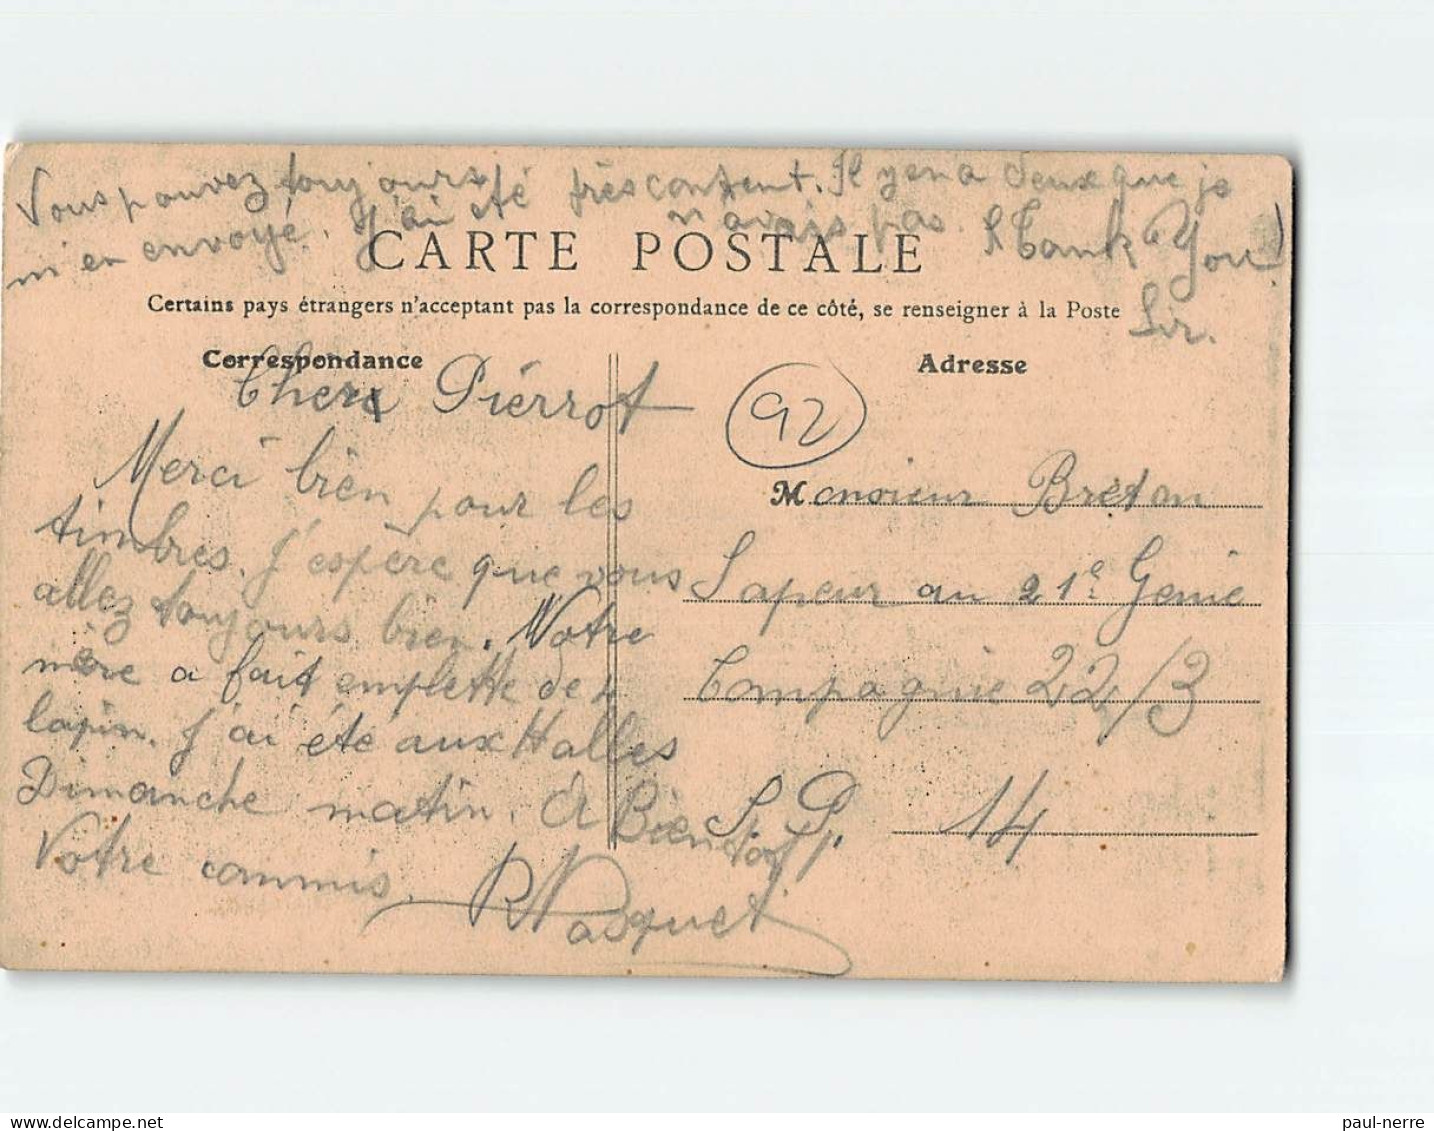 Vous pouvez toujours
m'en envoyé. J'ai été très content. Il y en a deux que je
n'avais pas. Thank You
Sir.
CARTE POSTALE
Certains pays étrangers n'acceptant pas la correspondance de ce côté, se renseigner à la Poste
Correspondance
Cher Piérrot
Merci bien pour les
timbres. J'espère que vous
allez toujours bien. Votre
mère a fait emplette de 4
lapin. J'ai été aux Halles
Dimanche matin. A Bientot
Votre commis.
R Pasquet
Adresse
92
Monsieur Breton
Sapeur au 21e Genie
Compagnie 22/3
S. P. 14
paul-nerre